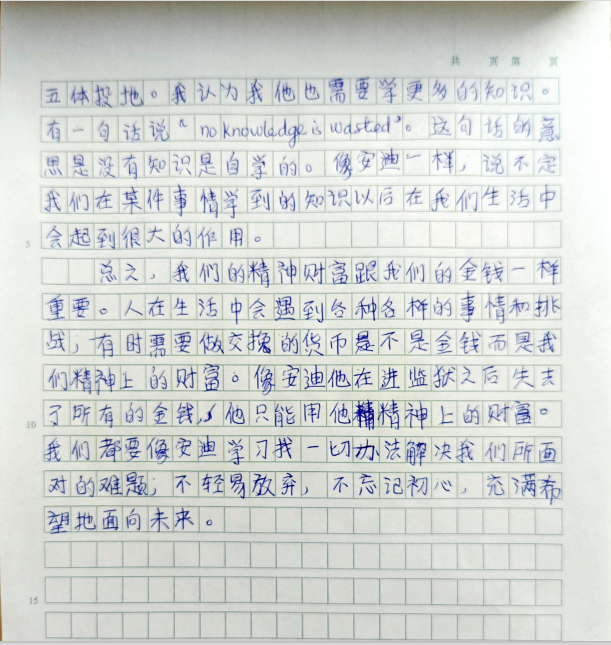 共 页 第 页
五体投地。我认为我他也需要学更多的知识。
有一句话说“no knowledge is wasted”。这句话的意
思是没有知识是自学的。像安迪一样，说不定
我们在某件事情学到的知识以后在我们生活中
5 会起到很大的作用。
总之，我们的精神财富跟我们的金钱一样
重要。人在生活中会遇到各种各样的事情和挑
战，有时需要做交换的货币是不是金钱而是我
们精神上的财富。像安迪他在进监狱之后失去
10 了所有的金钱，他只能用他精神上的财富。
我们都要像安迪学习找一切办法解决我们所面
对的难题，不轻易放弃，不忘记初心，充满希
望地面向未来。
15